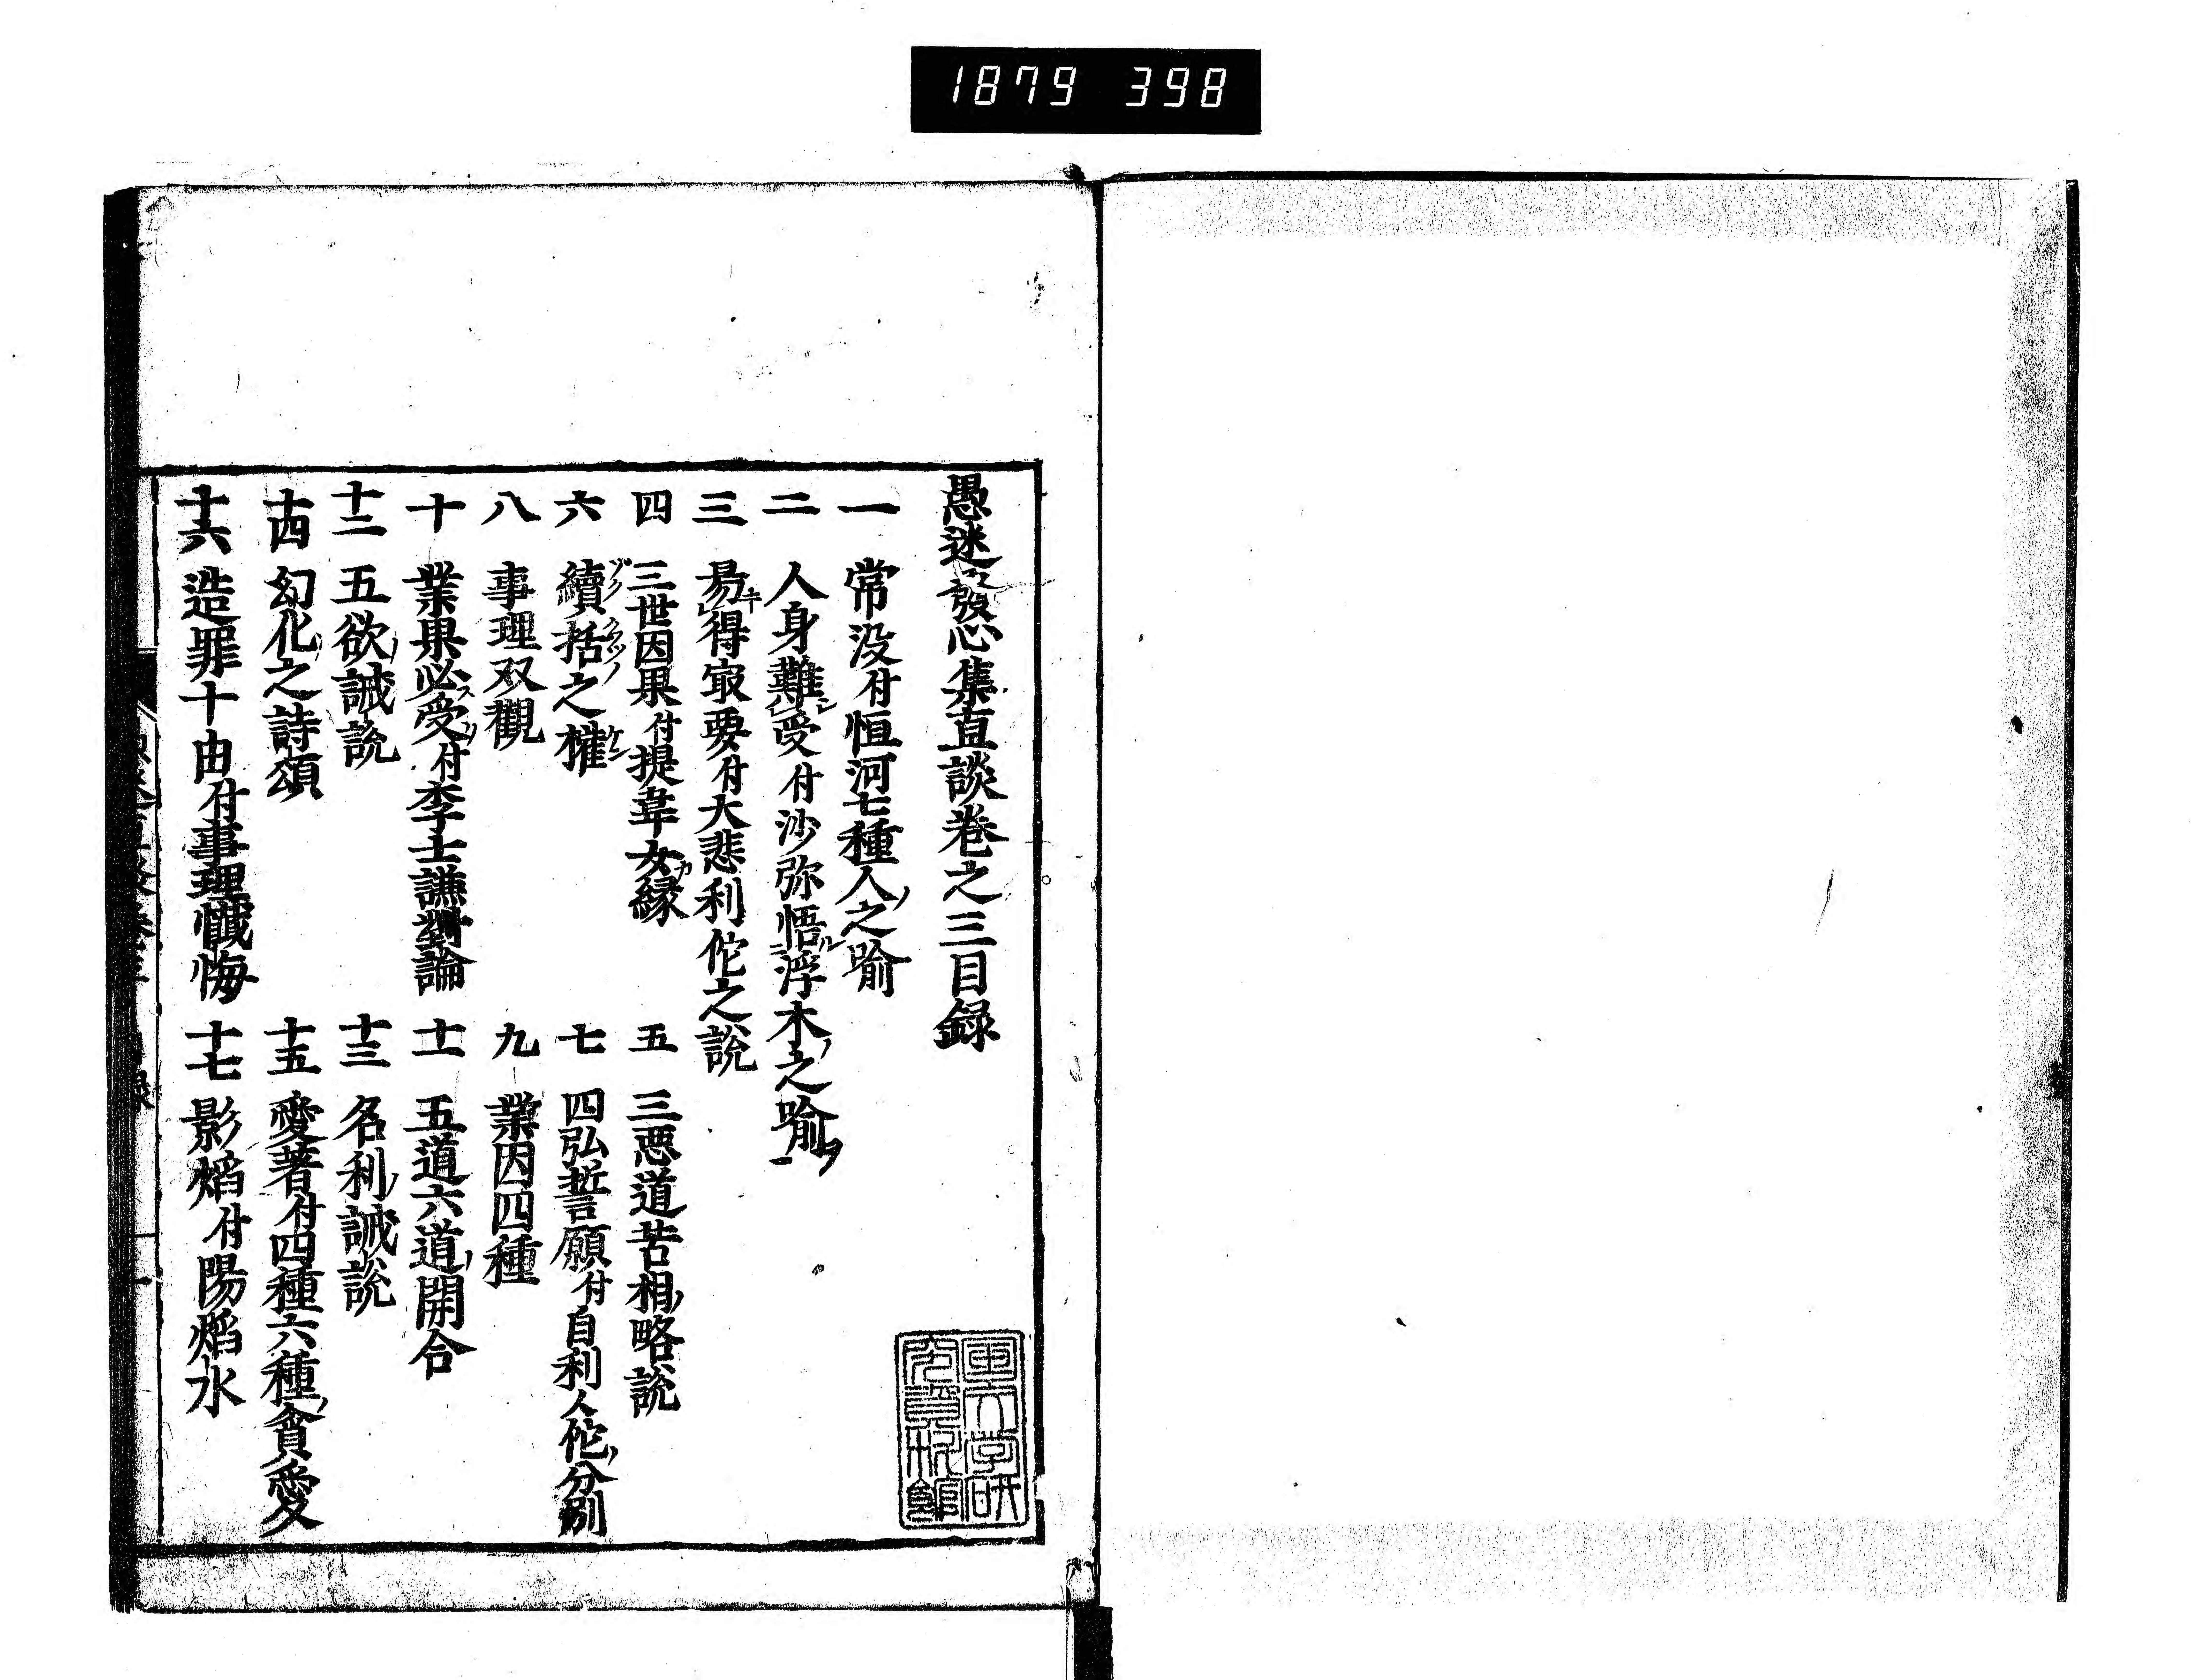 1879 398
愚迷發心集直談卷之三目録
一 常没付恒河七種人之喻
二 人身難受付沙弥悟浮木之喻
三 易得㝡要付大悲利佗之說
四 三世因果付提韋女縁 五 三悪道苦相略說
六 續括之權 七 四弘誓願付自利人佗分別
八 事理双觀 九 業因四種
十 業果必受付李士謙對論 十一 五道六道開合
十二 五欲誡說 十三 名利誡說
十四 幻化之詩頌 十五 愛著付四種六種貪愛
十六 造罪十由付事理懺悔 十七 影焰付陽焰水